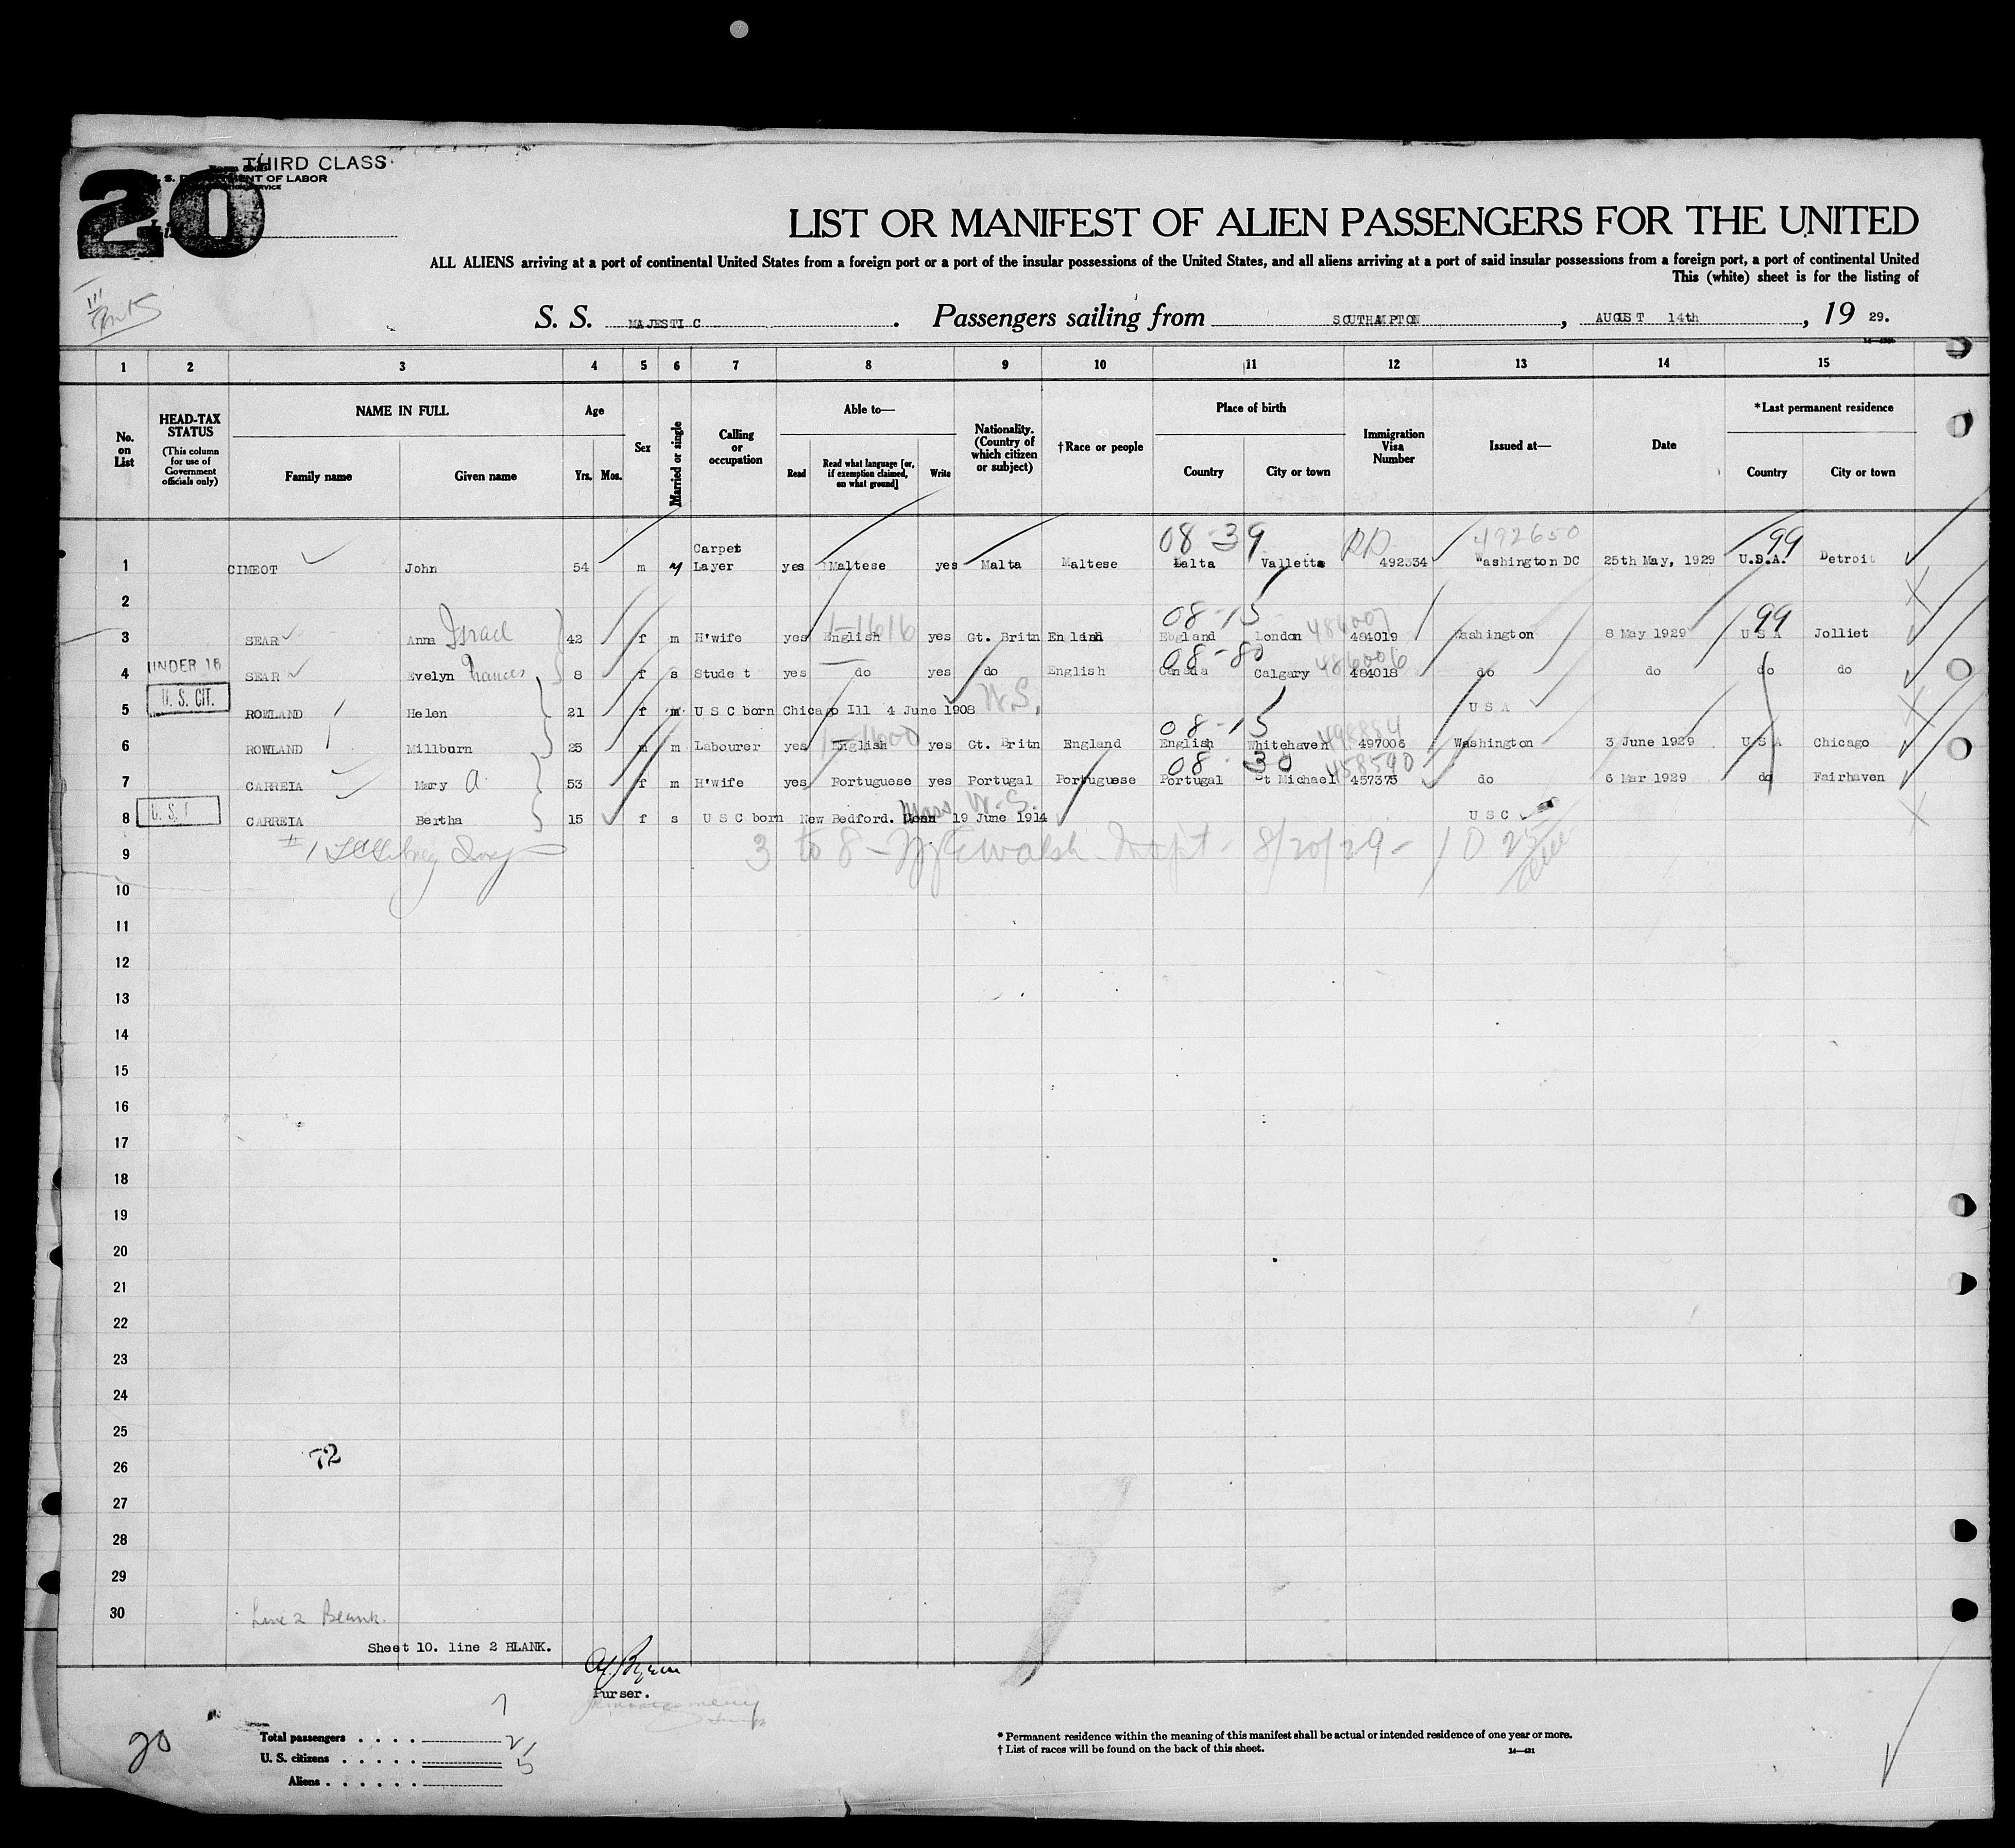 THIRD CLASS
U. S. DEPARTMENT OF LABOR
20
LIST OR MANIFEST OF ALIEN PASSENGERS FOR THE UNITED
ALL ALIENS arriving at a port of continental United States from a foreign port or a port of the insular possessions of the United States, and all aliens arriving at a port of said insular possessions from a foreign port, a port of continental United
This (white) sheet is for the listing of
S. S. MAJESTIC. Passengers sailing from SOUTHAMPTON, AUGUST 14th, 19 29.
1 2 3 4 5 6 7 8 9 10 11 12 13 14 15
No. on List
HEAD-TAX STATUS (This column for use of Government officials only)
NAME IN FULL Family name Given name
Age Yrs. Mos.
Sex
Married or single
Calling or occupation
Able to— Read Read what language [or, if exemption claimed, on what ground] Write
Nationality. (Country of which citizen or subject)
†Race or people
Place of birth Country City or town
Immigration Visa Number
Issued at—
Date
*Last permanent residence Country City or town
08-39 492650 99
1 CIMEOT John 54 m m Carpet Layer yes Maltese yes Malta Maltese Malta Valletta 492334 Washington DC 25th May, 1929 U.S.A. Detroit
2
08-15 484007 99
3 SEAR Anna Israel 42 f m H'wife yes English 1-1616 yes Gt. Britn England England London 484019 Washington 8 May 1929 U S A Jolliet
UNDER 16 08-80 486006
4 SEAR Evelyn Frances 8 f s Stude t yes do yes do English Canada Calgary 484018 do do do do
U. S. CIT.
5 ROWLAND Helen 21 f m U S C born Chicago Ill 4 June 1908 W.S. U S A
08-15 498884
6 ROWLAND Millburn 25 m m Labourer yes English 1-1600 yes Gt. Britn England English Whitehaven 497006 Washington 3 June 1929 U S A Chicago
08-30 458590
7 CARREIA Mary A 53 f m H'wife yes Portuguese yes Portugal Portuguese Portugal St Michael 457375 do 6 Mar 1929 do Fairhaven
8 CARREIA Bertha 15 f s U S C born New Bedford. Mass W.S. 19 June 1914 U S C
9 3 to 8 - Walsh Inspt - 8/20/29 - 10
10
11
12
13
14
15
16
17
18
19
20
21
22
23
24
25
26 72
27
28
29
30 Line 2 Blank.
Sheet 10. line 2 BLANK.
Purser.
20
Total passengers . . . . 7
U. S. citizens . . . . . 2
Aliens . . . . . . 5
* Permanent residence within the meaning of this manifest shall be actual or intended residence of one year or more.
† List of races will be found on the back of this sheet.
14—421